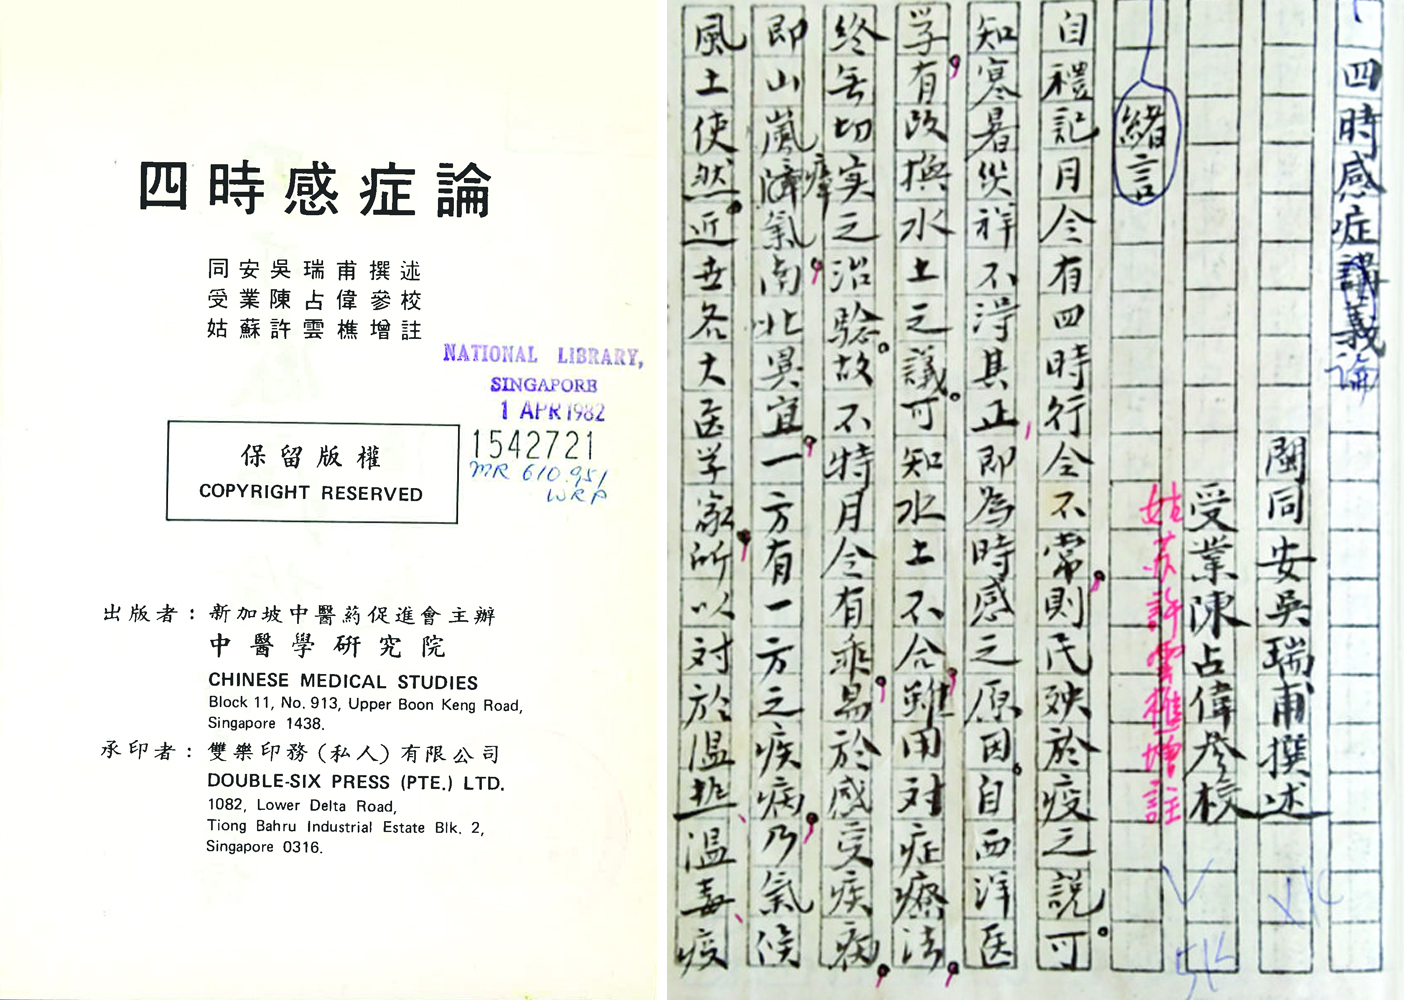 四時感症論
同安吳瑞甫撰述
受業陳占偉參校
姑蘇許雲樵增註
NATIONAL LIBRARY,
SINGAPORE
1 APR 1982
1542721
MR 610.951
WRP
保留版權
COPYRIGHT RESERVED
出版者：新加坡中醫葯促進會主辦
中醫學研究院
CHINESE MEDICAL STUDIES
Block 11, No. 913, Upper Boon Keng Road,
Singapore 1438.
承印者：雙樂印務(私人)有限公司
DOUBLE-SIX PRESS (PTE.) LTD.
1082, Lower Delta Road,
Tiong Bahru Industrial Estate Blk. 2,
Singapore 0316.
四時感症講義論
閩同安吳瑞甫撰述
受業陳占偉參校
姑苏許雲樵增註
緒言
自禮記月令有四時行令不常，則民殃於疫之說。可
知寒暑災祥不得其正，即為時感之原因。自西洋医
学，有改換水土之議。可知水土不合，雖用対症療法，
終無切实之治驗。故不特月令有乖，易於感受疾病，
即山嵐瘴氣，南北異宜，一方有一方之疾病，乃氣候
風土使然。近世各大医学家，所以対於温热、温毒、疫